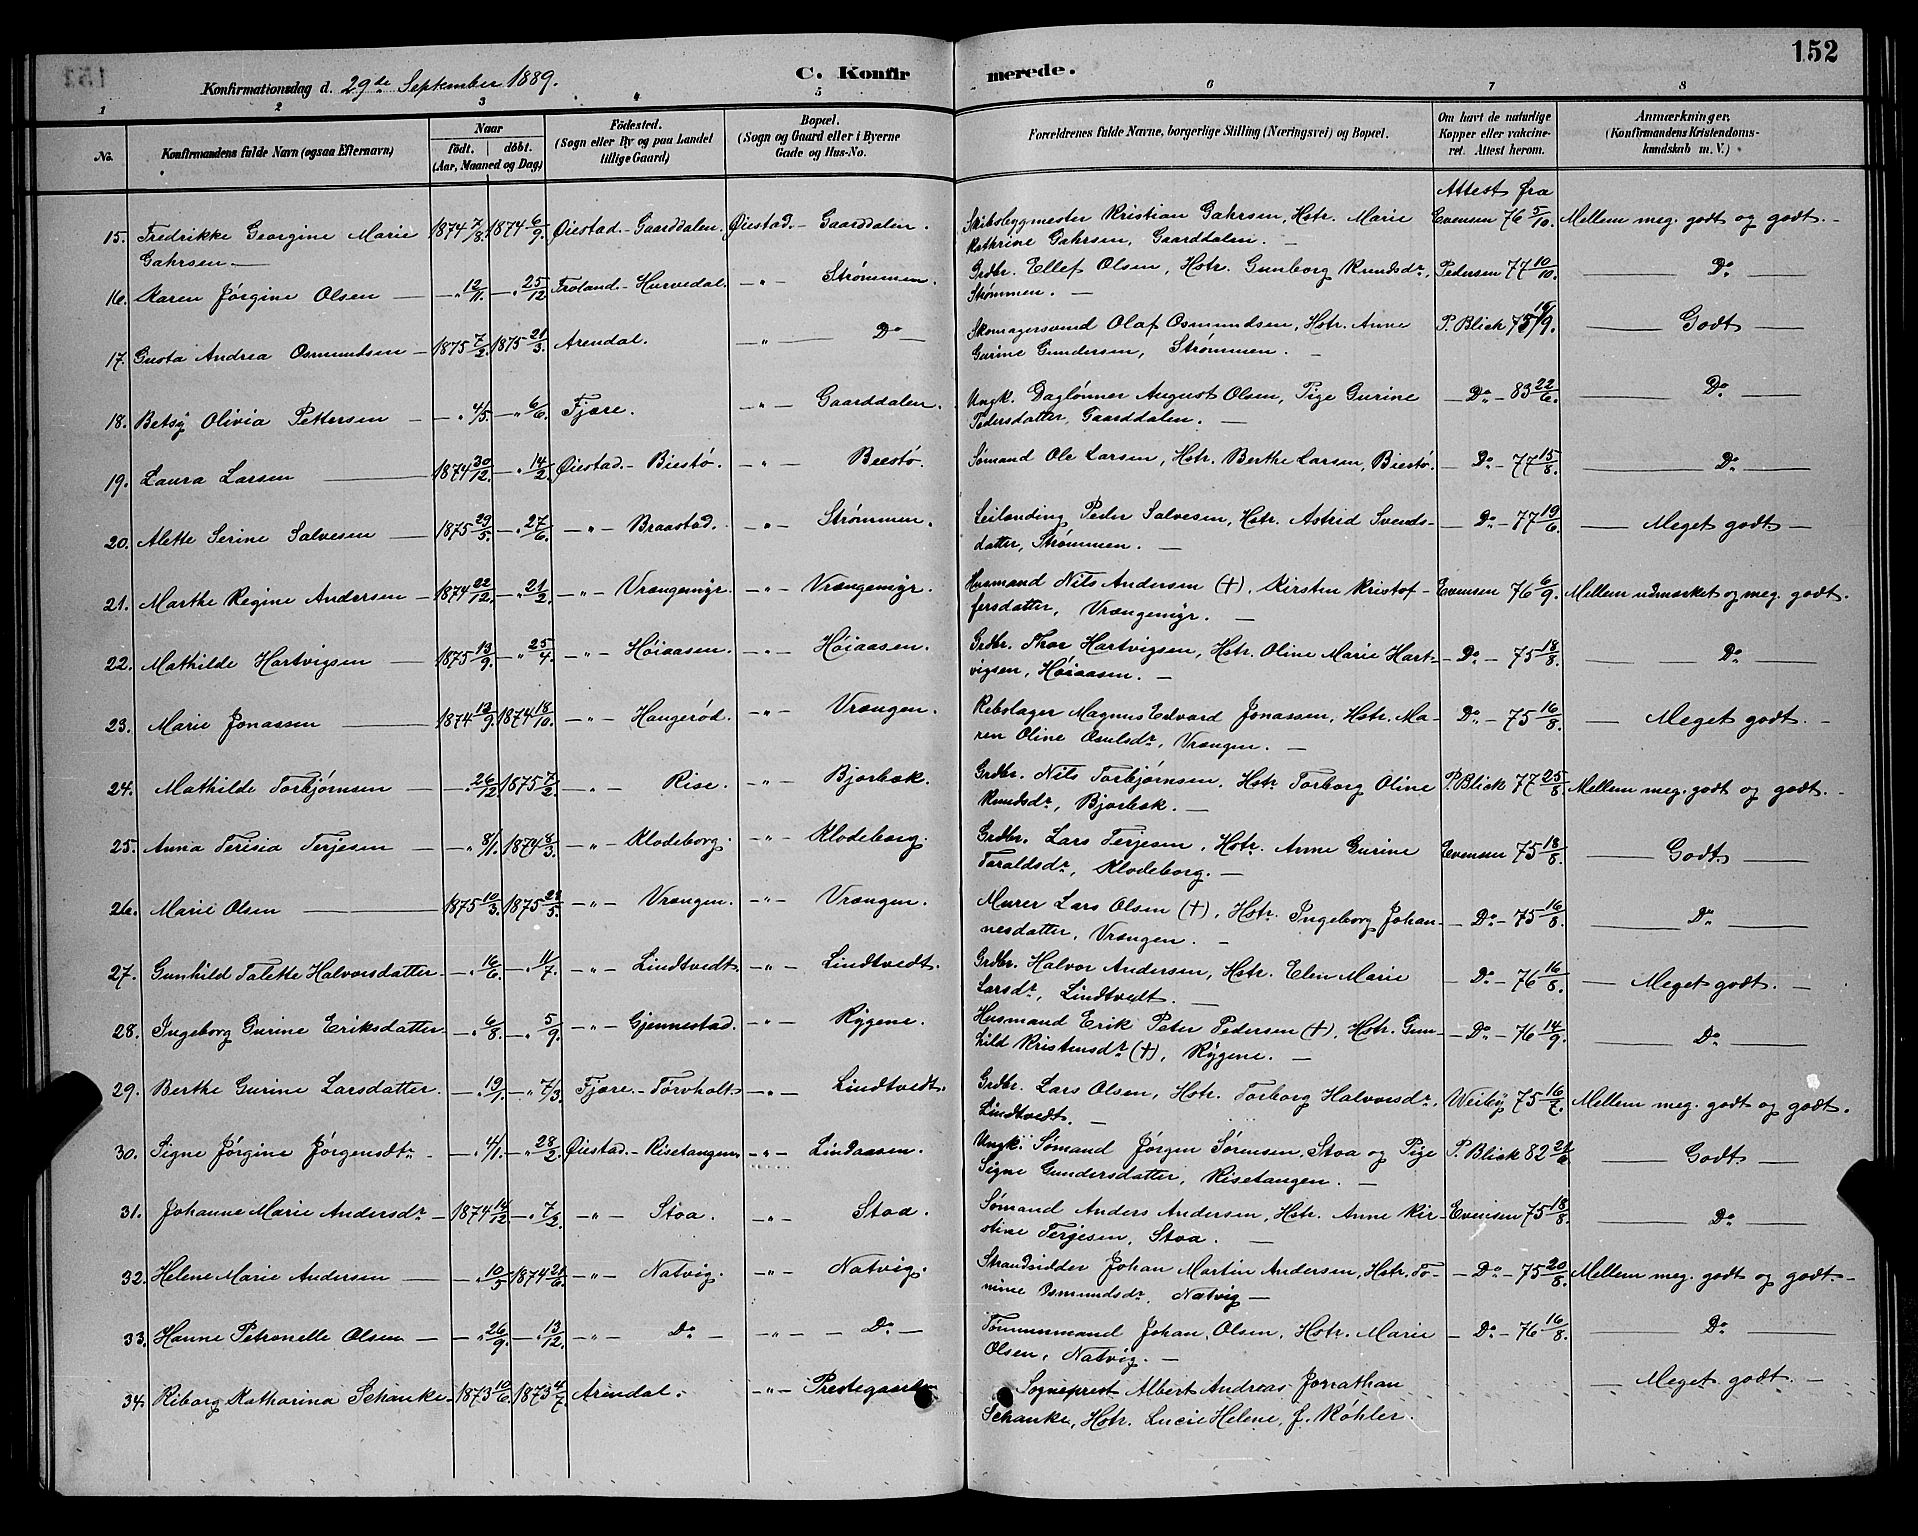 152
Konfirmationsdag d. 29de September 1889.
C. Konfirmerede.
1 2 3 4 5 6 7 8
No.
Konfirmandens fulde Navn (ogsaa Efternavn)
Naar
födt. döbt.
(Aar, Maaned og Dag)
Födested.
(Sogn eller By og paa Landet
tillige Gaard)
Bopæl.
(Sogn og Gaard eller i Byerne
Gade og Hus-No.
Forældrenes fulde Navne, borgerlige Stilling (Næringsvei) og Bopæl.
Om havt de naturlige
Kopper eller vakcine-
ret. Attest herom.
Anmærkninger.
(Konfirmandens Kristendoms-
kundskab m. V.)
Attest fra
15. Fredrikke Georgine Marie 1874 7/8. 1874 6/9. Øiestad.- Gaarddalen. Øiestad.- Gaarddalen. Skibsbygmester Kristian Gahrsen, Hstr. Marie Evensen 76 5/10. Mellem meg. godt og godt. -
Gahrsen — Kathrine Gahrsen, Gaarddalen. —
16. Karen Jørgine Olsen — - " 12/11. - " 25/12 Froland.- Hurvedal. - " - Strømmen. Grdbr. Ellef Olsen, Hstr. Gunborg Knudsdr, Pedersen 77 10/10. — Do —
Strømmen. —
17. Gusta Andrea Osmundsen - 1875 7/2. 1875 21/3. Arendal. - " - Do - Skomagersvend Olaf Osmundsen, Hstr. Anne P. Blick 75 /9. — Godt —
Gurine Gundersen, Strømmen. —
18. Betsy Olivia Pettersen - - " 4/5 - " 6/6. Fjære. - " - Gaarddalen. Ungk. Dagløner August Olsen, Pige Gurine - Do - 83 22/6. — Do —
Pedersdatter, Gaarddalen. —
19. Laura Larsen — 1874 30/12. - " 14/2. Øiestad.- Biestø. - " - Beestø. Sømand Ole Larsen, Hstr. Berthe Larsen, Biestø. - Do - 77 15/8. — Do —
20. Alette Serine Salvesen — 1875 29/5. - " 27/6. - " - Braastad. - " - Strømmen. Leilending Peder Salvesen, Hstr. Astrid Svends- - Do - 77 19/6. — Meget godt —
datter, Strømmen. —
21. Marthe Regine Andersen - 1874 22/12. - " 21/2. - " - Vrængemyr. - " - Vrængemyr. Husmand Nils Andersen (+), Kirsten Kristof- Evensen 76 6/9. Mellem udmærket og meg. godt.
fersdatter, Vrængemyr. —
22. Mathilde Hartvigsen — 1875 13/9. - " 25/4. - " - Høiaasen. - " - Høiaasen. Grdbr. Thor Hartvigsen, Hstr. Oline Marie Hart- - Do - 75 18/8. — Do —
vigsen, Høiaasen. —
23. Marie Jonassen — 1874 13/9. 1874 18/10. - " - Haugerød. - " - Vrængen. Rebslager Magnus Edvard Jonassen, Hstr. Ma- - Do - 75 16/8. — Meget godt. -
ren Oline Osulsdr, Vrængen. —
24. Mathilde Torbjørnsen — - " 26/12. 1875 7/2. - " - Rise. - " - Bjorbæk. Grdbr. Nils Torbjørnsen, Hstr. Torborg Oline P. Blick 77 25/8. Mellem meg. godt og godt. -
Knudsdr, Bjorbæk. —
25. Anna Terisia Terjesen - - " 8/1. 1874 8/3. - " - Klodeborg. - " - Klodeborg. Grdbr. Lars Terjesen, Hstr. Anne Gurine Evensen 75 18/8. — Godt —
Taraldsdr, Klodeborg. —
26. Marie Olsen — 1875 10/3. 1875 23/5. - " - Vrængen. - " - Vrængen. Murer Lars Olsen (+), Hstr. Ingeborg Johan- - Do - 75 16/8. — Do —
nesdatter, Vrængen. —
27. Gunhild Talette Halvorsdatter. - " 16/6. - " 11/7. - " - Lindtvedt. - " - Lindtvedt. Grdbr. Halvor Andersen, Hstr. Elen Marie - Do - 76 16/8. — Meget godt. —
Larsdr, Lindtvedt. —
28. Ingeborg Gurine Eriksdatter. - " 6/8. - " 5/9. - " - Gjennestad. - " - Rygene. Husmand Erik Peter Pedersen (+), Hstr. Gun- - Do - 76 14/9. — Do —
hild Kristensdr (+), Rygene. —
29. Berthe Gurine Larsdatter. - " 19/1. - " 7/3. Fjære.- Tørvholt. - " - Lindtvedt. Grdbr. Lars Olsen, Hstr. Torborg Halvorsdr. Weiby 75 16/7. Mellem meg. godt og godt.
Lindtvedt. —
30. Signe Jørgine Jørgensdtr - - " 4/1. - " 28/2. Øiestad.- Risetangen. - " - Lindaasen. Ungk. Sømand Jørgen Sørensen, Stoa og Pige P. Blick 82 21/6 — Godt. —
Signe Gundersdatter, Risetangen. —
31. Johanne Marie Andersdr - 1874 14/12 - " 7/2. - " - Stoa. - " - Stoa. Sømand Anders Andersen, Hstr. Anne Kir- Evensen 75 18/8. — Do —
stine Terjesen, Stoa. —
32. Helene Marie Andersen — - " 10/5 1874 21/6. - " - Natvig. - " - Natvig. Strandsidder Johan Martin Andersen, Hstr. To- - Do - 75 20/8. Mellem meg. godt og godt. -
nine Osmundsdr, Natvig —
33. Hanne Petronelle Olsen — - " 26/9. - " 13/12. - " - Do - - " - - Do - Tømmermand Johan Olsen, Hstr. Marie - Do - 76 16/8. — Do —
Olsen, Natvig. —
34. Riborg Katharina Schanke - 1873 10/6. 1873 4/7 Arendal. - " - Prestegaarden Sogneprest Albert Andreas Jonathan — Meget godt. —
Schanke, Hstr. Lucie Helene, f. Køhler.